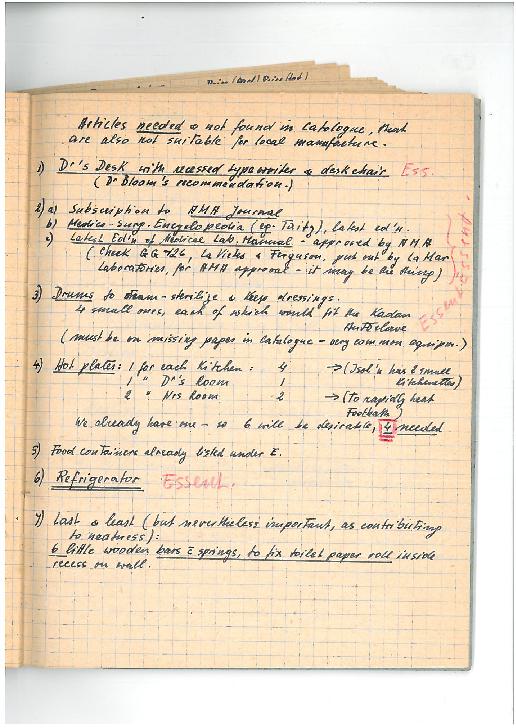 Articles needed & not found in Catologue, that
are also not suitable for local manufacture.
1) Dr's Desk with recessed typewriter & desk chair Ess.
(Dr Bloom's recommendation.)
2) a) Subscription to AMA Journal
b) Medico-Surg. Encyclopedia (eg. Ticity), latest ed'n.
c) Latest Ed'n of Medical Lab. Manual - approved by AMA
(Check GG-426, La Vicks & Ferguson, put out by La Mar
Laboratories, for AMA approval - it may be the thing)
ESSENT
ESSENT.
3) Drums to steam-sterilize & keep dressings.
4 small ones, each of which would fit the Kadan
Autoclave
(must be on missing paper in catalogue - very common equipm.)
4) Hot plates: 1 for each Kitchen: 4 → (Isol'n has 2 small
Kitchenettes)
1 " Dr's Room 1
2 " Nrs Room 2 → (To rapidly heat
Footbath)
We already have one - so 6 will be desirable, 4 needed
5) Food containers already listed under E.
6) Refrigerator ESSENT.
7) Last & least (but nevertheless important, as contributing
to neatness):
6 little wooden bars c̄ springs, to fix toilet paper roll inside
recess on wall.